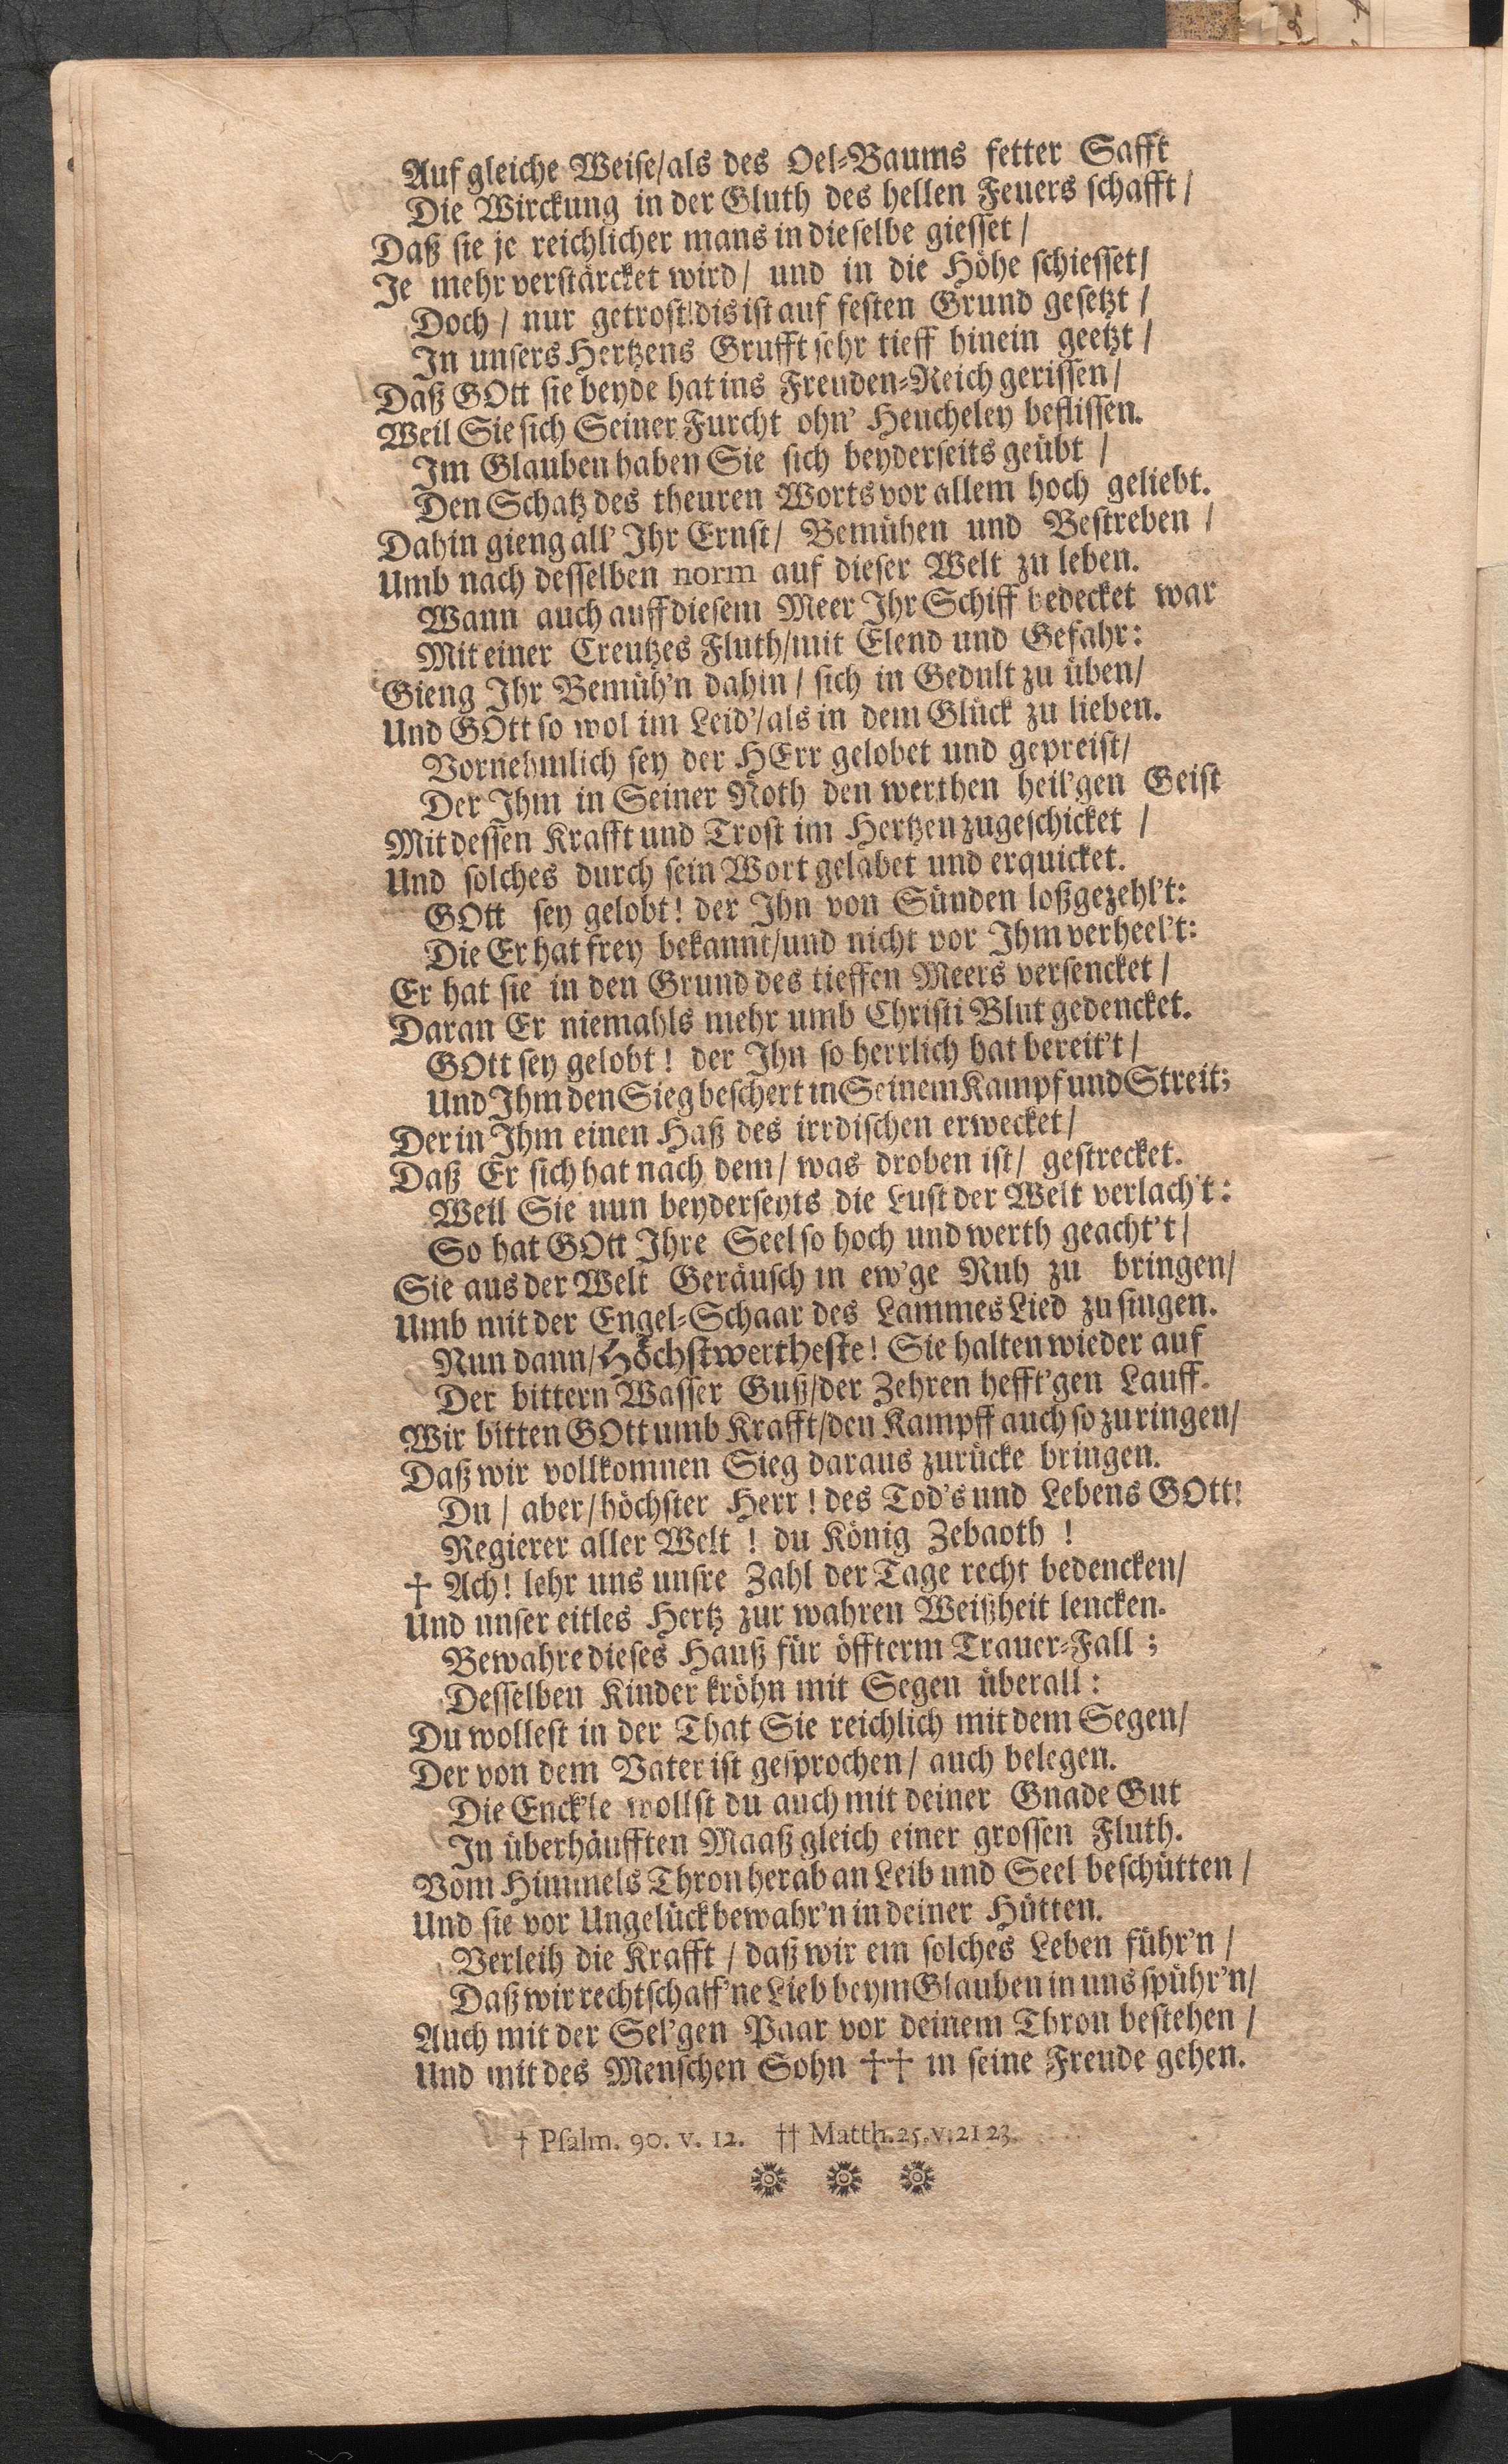 Auf gleiche Weise/als des Oel-Baums fetter Safft
Die Wirckung in der Gluth des hellen Feuers schafft/
Daß sie je reichlicher mans in dieselbe giesset/
Je mehr verstärcket wird/ und in die Höhe schiesset/
Doch/ nur getrost! dis ist auf festen Grund gesetzt/
In unsers Hertzens Grufft sehr tieff hinein geetzt/
Daß GOtt sie beyde hat ins Freuden-Reich gerissen/
Weil Sie sich Seiner Furcht ohn' Heucheley beflissen.
Im Glauben haben Sie sich beyderseits geübt/
Den Schatz des theuren Worts vor allem hoch geliebt.
Dahin gieng all' Ihr Ernst/ Bemühen und Bestreben/
Umb nach desselben norm auf dieser Welt zu leben.
Wann auch auff diesem Meer Ihr Schiff bedecket war
Mit einer Creutzes Fluth/mit Elend und Gefahr:
Gieng Ihr Bemüh'n dahin/ sich in Gedult zu üben/
Und GOtt so wol im Leid'/als in dem Glück zu lieben.
Vornehmlich sey der HErr gelobet und gepreist/
Der Ihm in Seiner Noth den werthen heil'gen Geist
Mit dessen Krafft und Trost im Hertzen zugeschicket/
Und solches durch sein Wort gelabet und erquicket.
GOtt sey gelobt! der Ihn von Sünden loßgezehl't:
Die Er hat frey bekannt/und nicht vor Ihm verheel't:
Er hat sie in den Grund des tieffen Meers versencket/
Daran Er niemahls mehr umb Christi Blut gedencket.
GOtt sey gelobt! der Ihn so herrlich hat bereit't/
Und Ihm den Sieg beschert in Seinem Kampf und Streit;
Der in Ihm einen Haß des irrdischen erwecket/
Daß Er sich hat nach dem/ was droben ist/ gestrecket.
Weil Sie nun beyderseyts die Lust der Welt verlach't:
So hat GOtt Ihre Seel so hoch und werth geacht't/
Sie aus der Welt Geräusch in ew'ge Ruh zu bringen/
Umb mit der Engel-Schaar des Lammes Lied zu singen.
Nun dann/Höchstwertheste! Sie halten wieder auf
Der bittern Wasser Guß/der Zehren hefft'gen Lauff.
Wir bitten GOtt umb Krafft/den Kampff auch so zu ringen/
Daß wir vollkomnen Sieg daraus zurücke bringen.
Du/ aber/höchster Herr! des Tod's und Lebens GOtt!
Regierer aller Welt! du König Zebaoth!
† Ach! lehr uns unsre Zahl der Tage recht bedencken/
Und unser eitles Hertz zur wahren Weißheit lencken.
Bewahre dieses Hauß für öffterm Trauer-Fall;
Desselben Kinder kröhn mit Segen überall:
Du wollest in der That Sie reichlich mit dem Segen/
Der von dem Vater ist gesprochen/ auch belegen.
Die Enck'le wollst du auch mit deiner Gnade Gut
In überhäufften Maaß gleich einer grossen Fluth.
Vom Himmels Thron herab an Leib und Seel beschütten/
Und sie vor Ungelück bewahr'n in deiner Hütten.
Verleih die Krafft/ daß wir ein solches Leben führ'n/
Daß wir rechtschaff'ne Lieb beym Glauben in uns spühr'n/
Auch mit der Sel'gen Paar vor deinem Thron bestehen/
Und mit des Menschen Sohn †† in seine Freude gehen.
† Psalm. 90. v. 12. †† Matth. 25. v. 21 23.